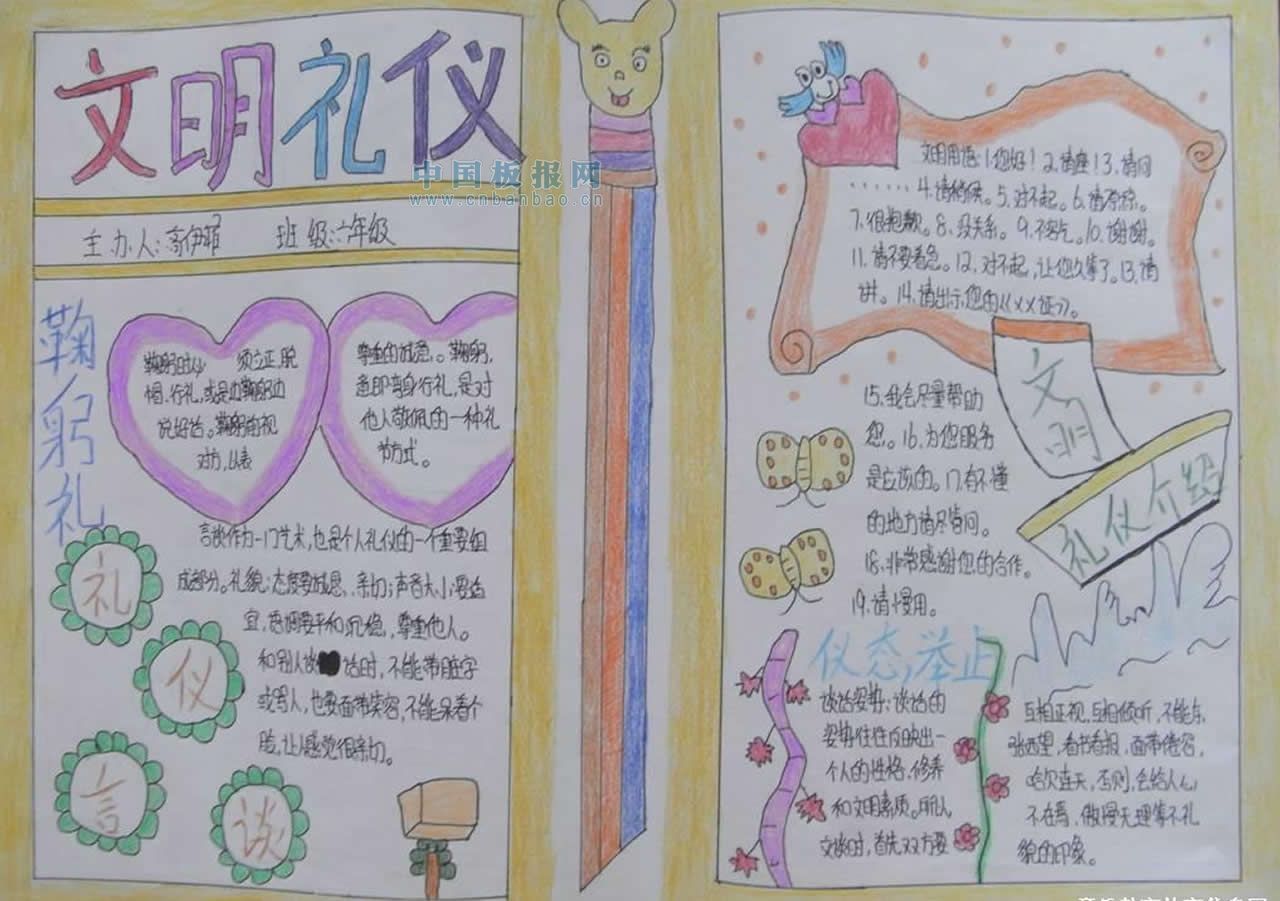 文明礼仪
中国板报网
www.cnbanbao.cn
主办人:高伊 班级:六年级
鞠躬礼
鞠躬时必 须立正,脱
帽、行礼,或是边鞠躬边
说好话。鞠躬前视
对方,以表
尊重的诚意。鞠躬,
意即弯身行礼,是对
他人敬佩的一种礼
节方式。
礼
仪
言
谈
言谈作为一门艺术,也是个人礼仪的一个重要组
成部分。礼貌:态度要诚恳、亲切;声音大小要适
宜,语调要平和沉稳,尊重他人。
和别人谈 话时,不能带脏字
或骂人,也要面带笑容,不能呆着个
脸,让人感觉很亲切。
文明用语:1.您好!2.请座!3.请问
……4.请稍候。5.对不起。6.请原谅。
7.很抱歉。8.没关系。9.不客气。10.谢谢。
11.请不要着急。12.对不起,让您久等了。13.请
讲。14.请出示您的《××证》。
15.我会尽量帮助
您。16.为您服务
是应该的。17.有不懂
的地方请尽管问。
18.非常感谢您的合作。
19.请慢用。
文明
礼仪介绍
仪态,举止
谈话姿势:谈话的
姿势往往反映出一
个人的性格、修养
和文明素质。所以,
交谈时,首先双方要
互相正视,互相倾听,不能东
张西望,看书看报,面带倦容,
哈欠连天,否则,会给人心
不在焉、傲慢无理等不礼
貌的印象。